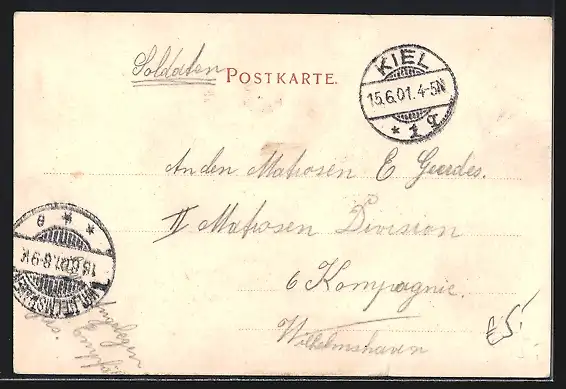 Soldaten POSTKARTE.
KIEL
15.6.01.4-5N
* 1 g
An den Matrosen E Geerdes.
II Matrosen Division
6 Kompagnie.
Wilhelmshaven
WILHELMSHAVEN
15.6.01.8-9N
* * e
£5